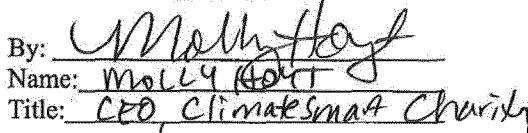 By: Molly Hoyt
Name: MOLLY HOYT
Title: CEO, Climatesmart Charity